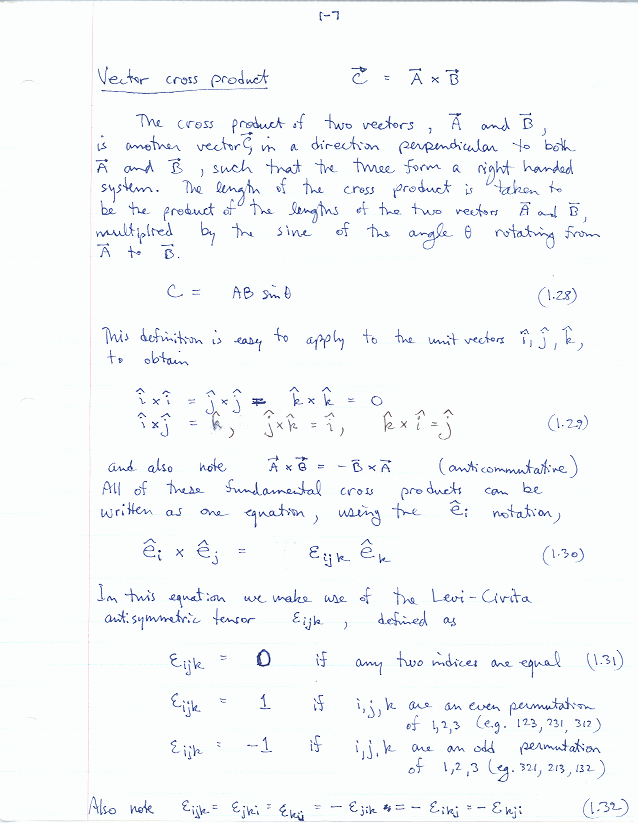 1-7
Vector cross product C⃗ = A⃗ × B⃗
The cross product of two vectors, A⃗ and B⃗,
is another vector C⃗, in a direction perpendicular to both
A⃗ and B⃗, such that the three form a right handed
system. The length of the cross product is taken to
be the product of the lengths of the two vectors A⃗ and B⃗,
multiplied by the sine of the angle θ rotating from
A⃗ to B⃗.
C = AB sin θ (1.28)
This definition is easy to apply to the unit vectors î, ĵ, k̂,
to obtain
î × î = ĵ × ĵ = k̂ × k̂ = 0
î × ĵ = k̂, ĵ × k̂ = î, k̂ × î = ĵ (1.29)
and also note A⃗ × B⃗ = - B⃗ × A⃗ (anticommutative)
All of these fundamental cross products can be
written as one equation, using the êᵢ notation,
êᵢ × êⱼ = εijk êₖ (1.30)
In this equation we make use of the Levi-Civita
antisymmetric tensor εijk, defined as
εijk = 0 if any two indices are equal (1.31)
εijk = 1 if i,j,k are an even permutation
of 1,2,3 (e.g. 123, 231, 312)
εijk = -1 if i,j,k are an odd permutation
of 1,2,3 (eg. 321, 213, 132)
Also note εijk = εjki = εkij = - εjik = - εikj = - εkji (1.32)